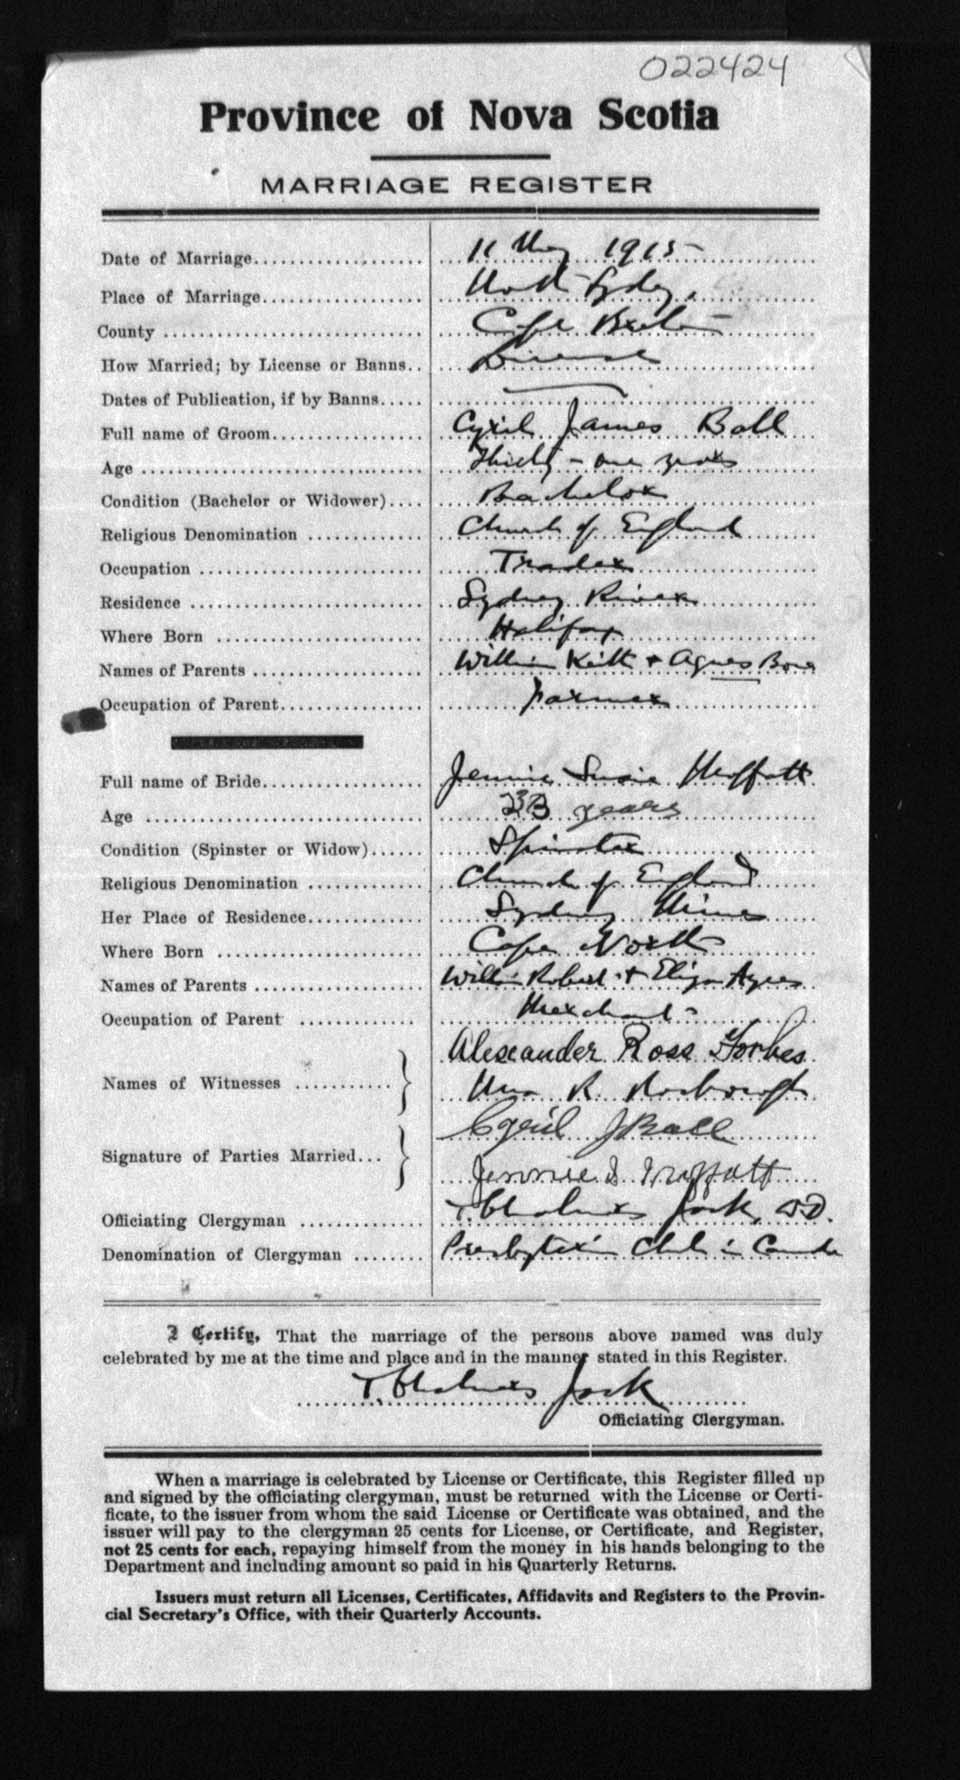 022424
Province of Nova Scotia
MARRIAGE REGISTER
Date of Marriage.................... 11 May 1915
Place of Marriage................... North Sydney,
County .................... Cape Breton
How Married; by License or Banns.. License
Dates of Publication, if by Banns..... ———
Full name of Groom.................. Cyril James Ball
Age .................... Thirty-one years
Condition (Bachelor or Widower).... Bachelor
Religious Denomination ............. Church of England
Occupation .................... Trader
Residence .................... Sydney River
Where Born .................... Halifax
Names of Parents .................... William Keith + Agnes
Occupation of Parent................. Farmer
Full name of Bride................... Jennie Susie Moffatt
Age .................... years
Condition (Spinster or Widow)...... Spinster
Religious Denomination ............. Church of England
Her Place of Residence.............. Sydney Mines
Where Born .................... Cape North
Names of Parents .................... William Robert + Eliza Agnes
Occupation of Parent .............. Merchant
Alexander Ross Forbes
Names of Witnesses ...........
R. Roxborough
Cyril J Ball
Signature of Parties Married...
Jennie S Moffatt
Officiating Clergyman ............. T. Chalmers Jack, DD.
Denomination of Clergyman ........ Presbyterian Ch. in Canada
I Certify, That the marriage of the persons above named was duly
celebrated by me at the time and place and in the manner stated in this Register.
T. Chalmers Jack
Officiating Clergyman.
When a marriage is celebrated by License or Certificate, this Register filled up
and signed by the officiating clergyman, must be returned with the License or Certi-
ficate, to the issuer from whom the said License or Certificate was obtained, and the
issuer will pay to the clergyman 25 cents for License, or Certificate, and Register,
not 25 cents for each, repaying himself from the money in his hands belonging to the
Department and including amount so paid in his Quarterly Returns.
Issuers must return all Licenses, Certificates, Affidavits and Registers to the Provin-
cial Secretary's Office, with their Quarterly Accounts.